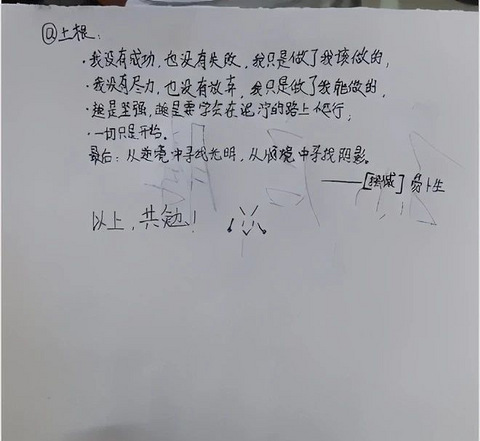 @土根:
·我没有成功,也没有失败,我只是做了我该做的;
·我没有尽力,也没有放弃,我只是做了我能做的;
·越是坚强,越是要学会在泥泞的路上爬行;
·一切只是开始。
最后:从逆境中寻找光明,从顺境中寻找阴影。
——[挪威] 易卜生
以上,共勉!